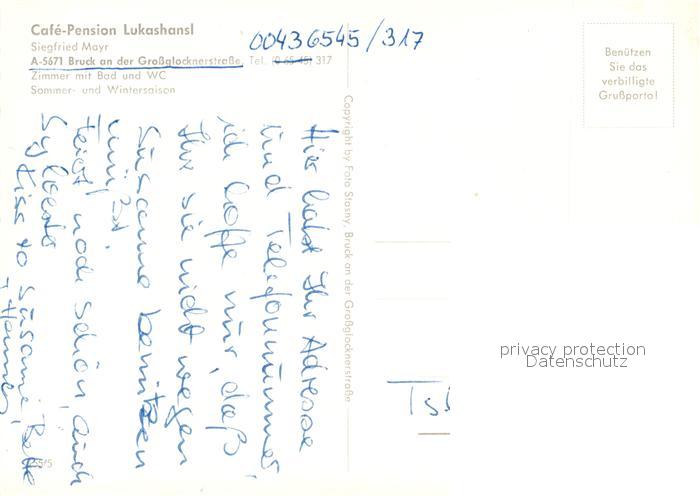 Café-Pension Lukashansl
Siegfried Mayr
A-5671 Bruck an der Großglocknerstraße, Tel. (0 65 45) 317
Zimmer mit Bad und WC
Sommer- und Wintersaison
00436545/317
Benützen
Sie das
verbilligte
Grußporto!
Copyright by Foto Stasny, Bruck an der Großglocknerstraße
Hier habt Ihr Adresse
und Telefonnummer,
ich hoffe nur, daß
Ihr sie nicht wegen
Susanne benützen
müßt.
Feiert noch schön, auch
Sylvester
Kiss to Susanne, Bette
+ Hannes
privacy protection
Datenschutz